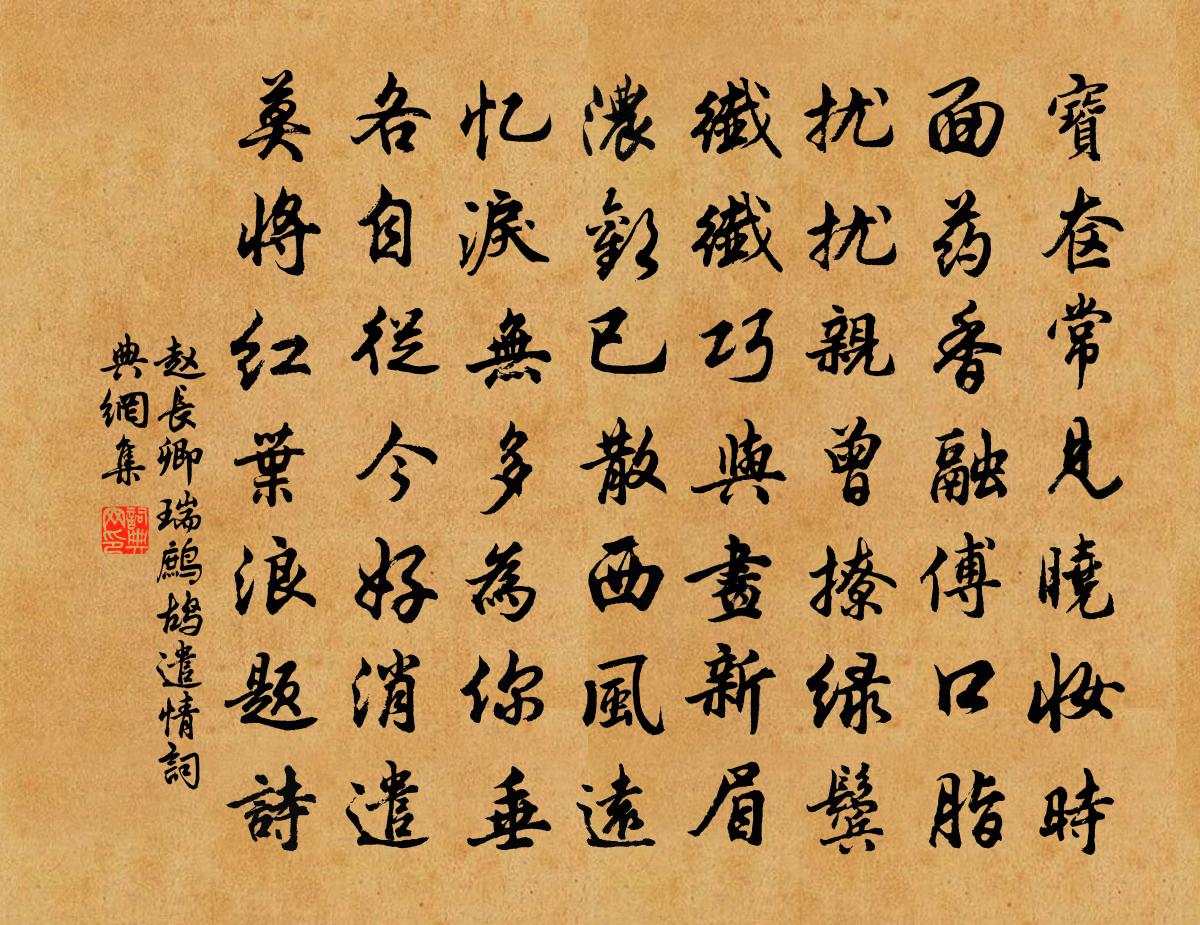 寶奁常見曉妆時
面药香融傅口脂
扰扰親曾撩绿鬓
纖纖巧與畫新眉
濃歡已散西風遠
忆淚無多為你垂
各自從今好消遣
莫將红葉浪题詩
赵長卿瑞鷓鴣遣情詞
典網集
詞典
网印